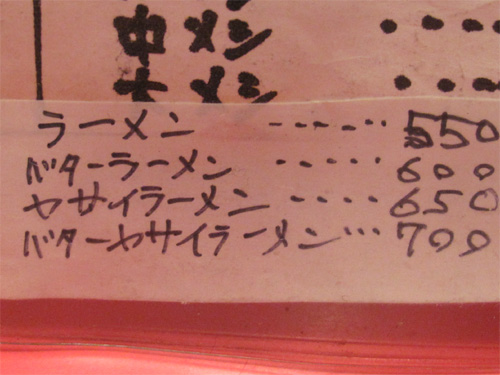 中メシ ････
大メシ ････
ラーメン ------- 550
バターラーメン ----- 600
ヤサイラーメン ---- 650
バターヤサイラーメン… 700